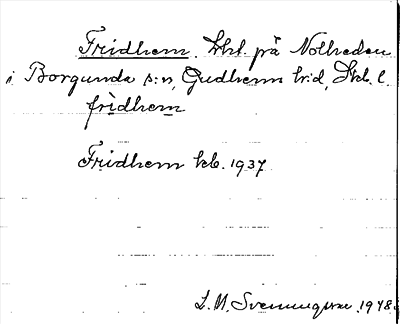 Fridhem. lht. på Nolheden
i Borgunda s:n, Gudhem hrd, Skb. l.
fridhem
Fridhem kb. 1937
L. M. Svenungsson 1948.